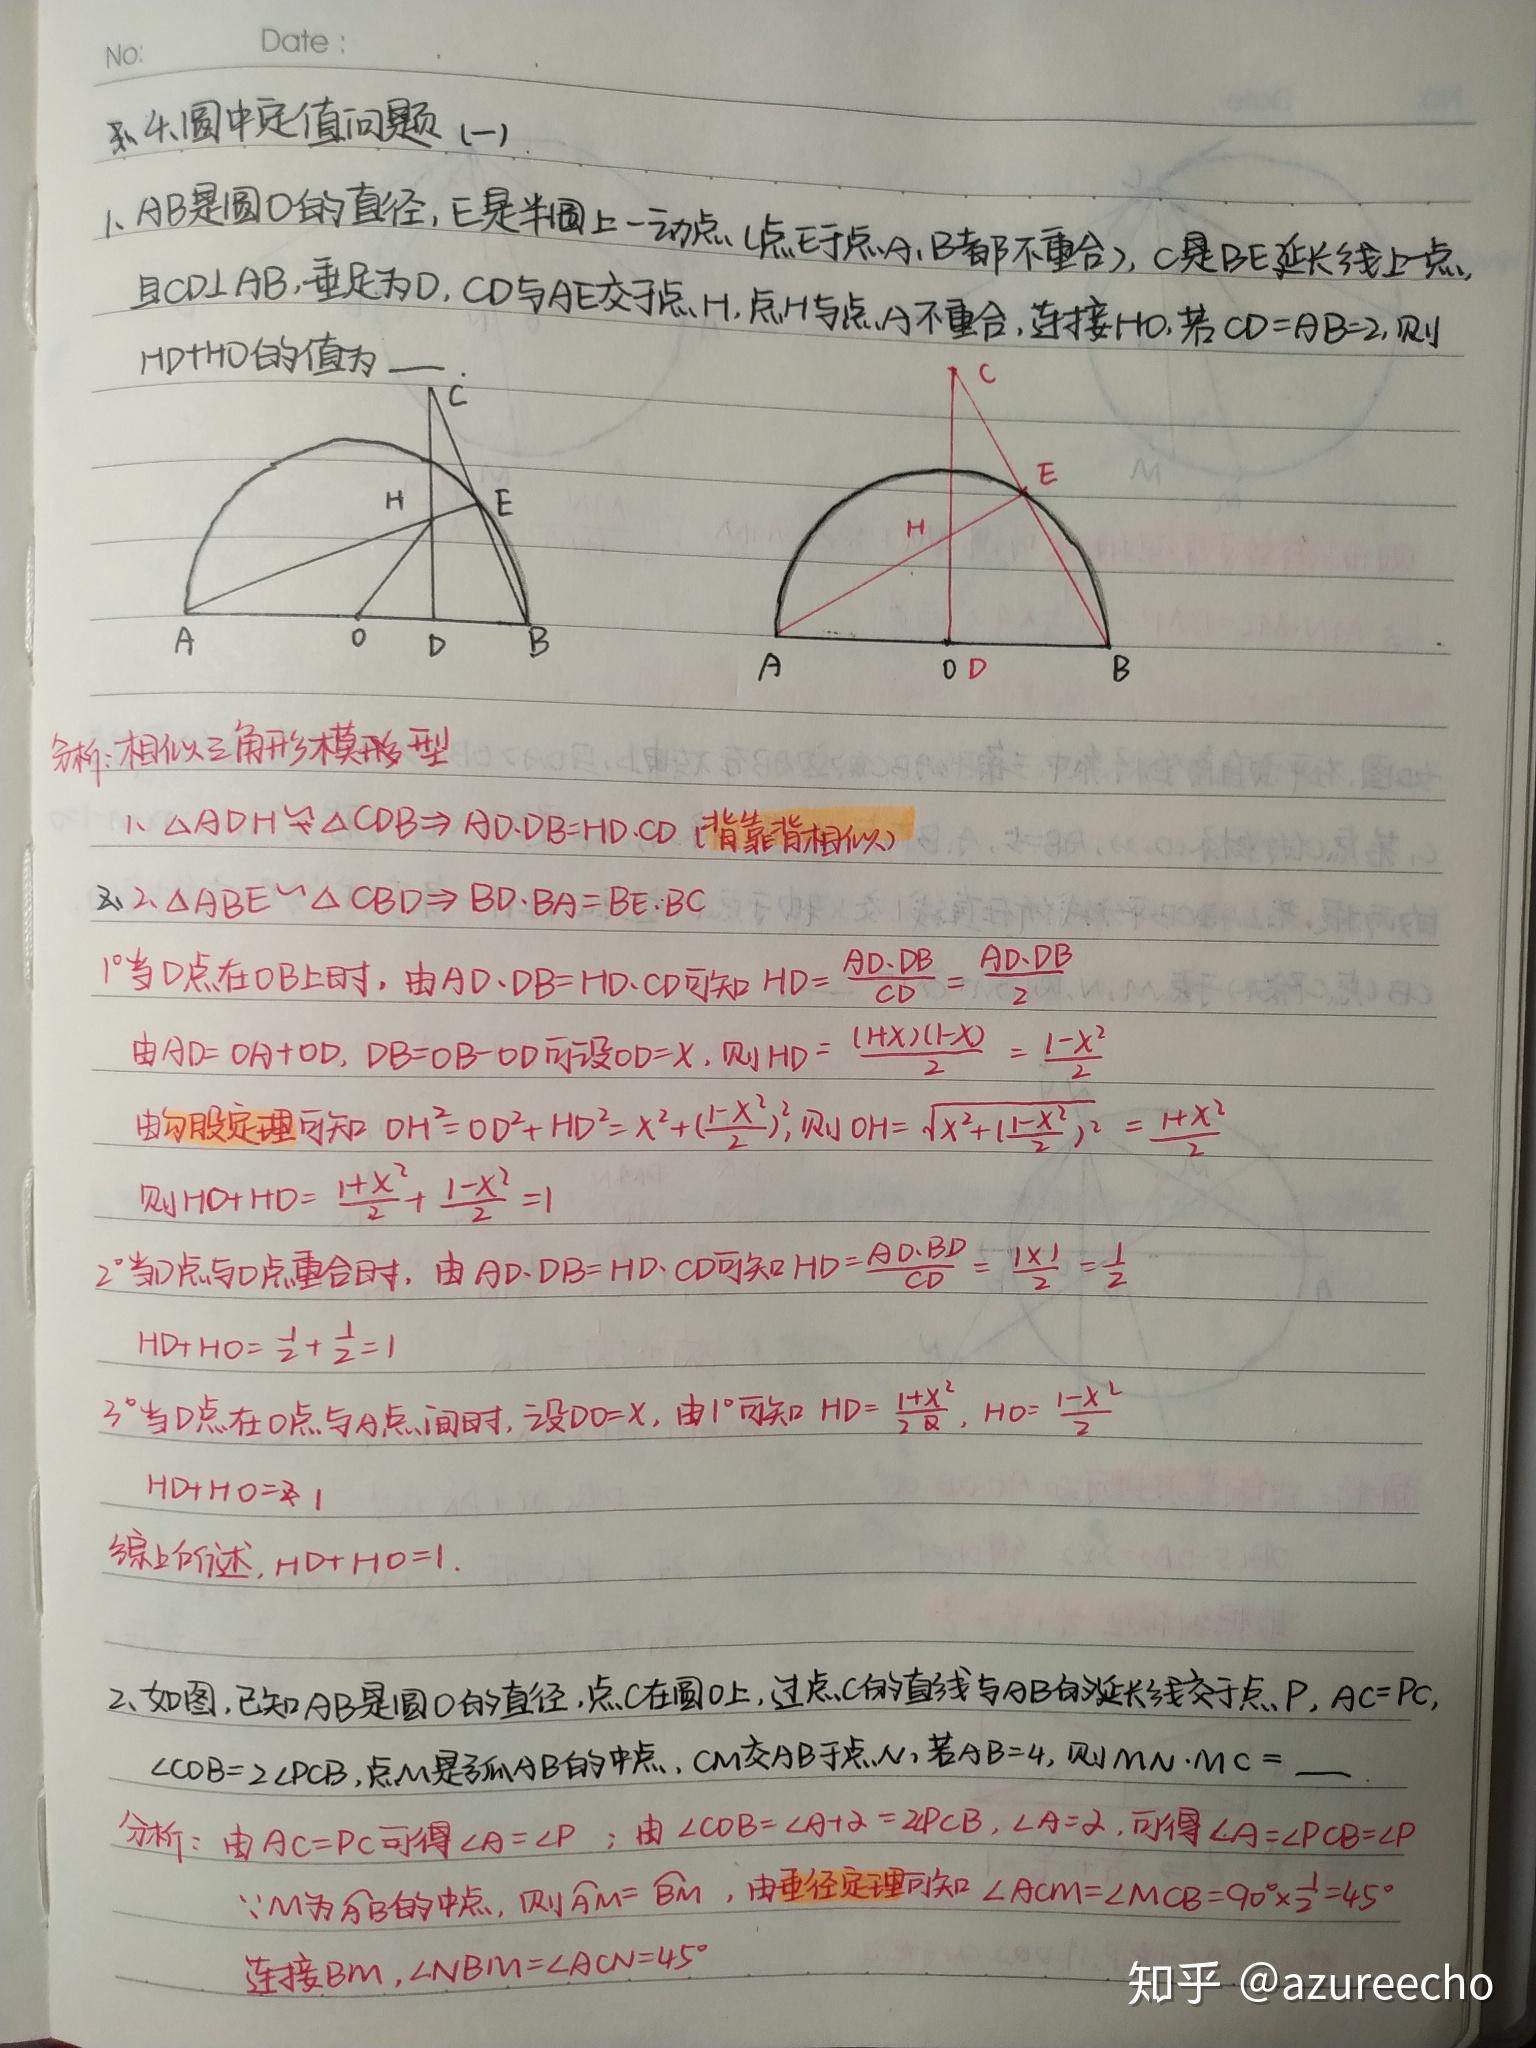 No:
Date:
4、圆中定值问题(一)
1、AB是圆O的直径,E是半圆上一动点(点E于点A、B都不重合),C是BE延长线上一点,
且CD⊥AB,垂足为D,CD与AE交于点H,点H与点A不重合,连接HO,若CD=AB=2,则
HD+HO的值为___.
C
H
E
A
O
D
B
C
E
H
A
O D
B
分析:相似三角形模型
1、△ADH∽△CDB⇒AD·DB=HD·CD(背靠背相似)
2、△ABE∽△CBD⇒BD·BA=BE·BC
1°当D点在OB上时,由AD·DB=HD·CD可知HD=AD·DB/CD=AD·DB/2
由AD=OA+OD,DB=OB-OD可设OD=x,则HD=(1+x)(1-x)/2=1-x²/2
由勾股定理可知OH²=OD²+HD²=x²+(1-x²/2)²,则OH=√x²+(1-x²/2)²=1+x²/2
则HO+HD=1+x²/2+1-x²/2=1
2°当D点与O点重合时,由AD·DB=HD·CD可知HD=AD·BD/CD=1×1/2=1/2
HD+HO=1/2+1/2=1
3°当D点在O点与A点间时,设DO=x,由1°可知HD=1+x²/2,HO=1-x²/2
HD+HO=1
综上所述,HD+HO=1.
2、如图,已知AB是圆O的直径,点C在圆O上,过点C的直线与AB的延长线交于点P,AC=PC,
∠COB=2∠PCB,点M是弧AB的中点,CM交AB于点N,若AB=4,则MN·MC=___
分析:由AC=PC可得∠A=∠P;由∠COB=∠A+2=2∠PCB,∠A=2,可得∠A=∠PCB=∠P
∵M为AB的中点,则AM=BM,由垂径定理可知∠ACM=∠MCB=90°×1/2=45°
连接BM,∠NBM=∠ACN=45°
知乎 @azureecho